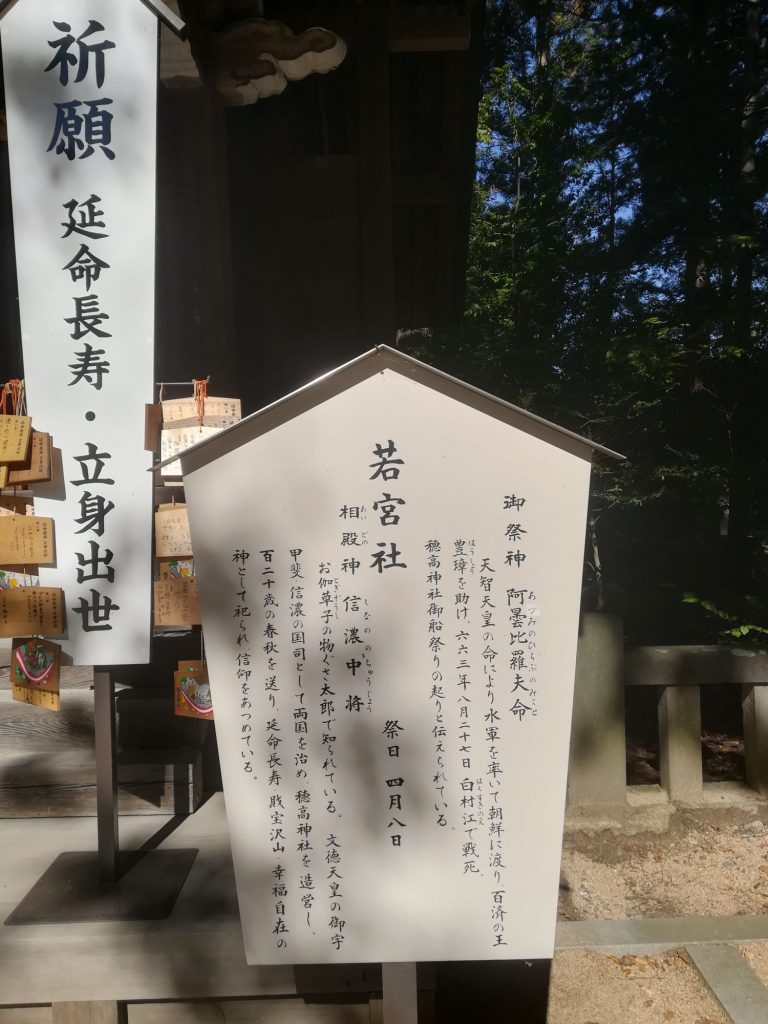 祈願 延命長寿・立身出世
若宮社
御祭神 阿曇比羅夫命
あづみのひらぶのみこと
天智天皇の命により水軍を率いて朝鮮に渡り、百済の王
豊璋を助け、六六三年八月二十七日 白村江で戦死、
ほうしょう
はくすきのえ
穂高神社御船祭りの起りと伝えられている。
祭日 四月八日
相殿神 信濃中将
あいどの
しなののちゅうじょう
お伽草子の物ぐさ太郎で知られている。 文徳天皇の御宇
とぎぞうし
甲斐・信濃の国司として両国を治め、穂高神社を造営し、
百二十歳の春秋を送り、延命長寿 財宝沢山・幸福自在の
神として祀られ、信仰をあつめている。